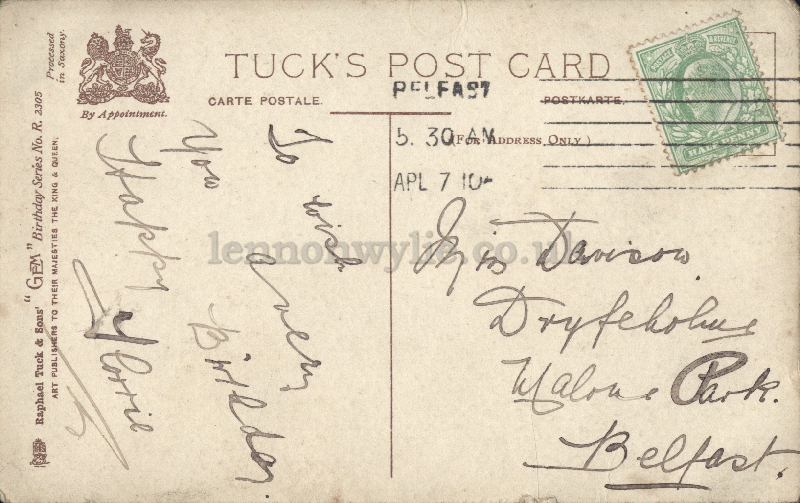 TUCK'S POST CARD
CARTE POSTALE.
POSTKARTE.
(FOR ADDRESS ONLY.)
By Appointment.
Processed
in Saxony.
Raphael Tuck & Sons' "GEM" Birthday Series No. R. 2305
ART PUBLISHERS TO THEIR MAJESTIES THE KING & QUEEN.
BELFAST
5. 30 AM
APL 7 10
POSTAGE & REVENUE
HALFPENNY
To wish
you a very
Happy Birthday.
Florrie
Miss Davison
Dryfeholme
Malone Park.
Belfast.
lennonwylie.co.uk